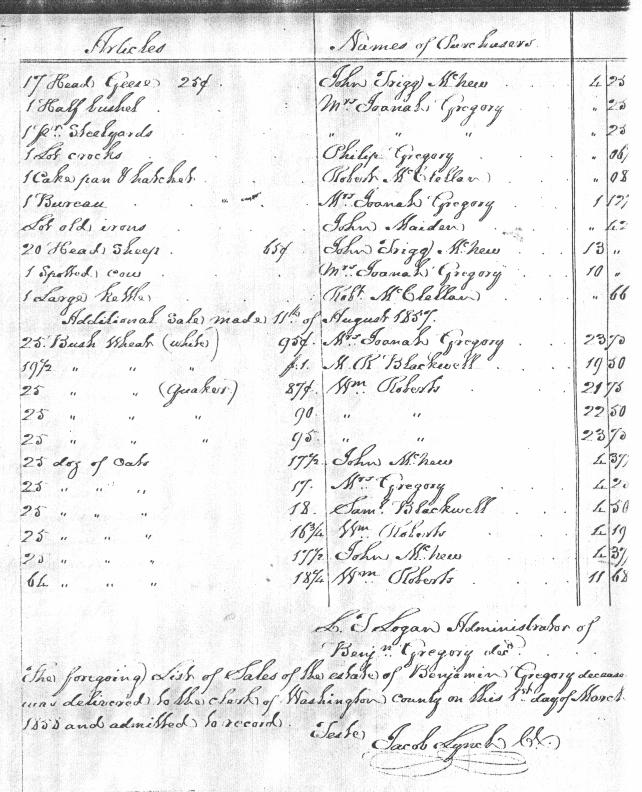 Articles Names of Purchasers
17 Head Geese 25¢ John Trigg McNew 4 25
1 Half bushel Mrs Joanah Gregory " 25
1 pr Steelyards " " " " 25
1 Lot crocks Philip Gregory " 06
1 Cake pan & hatchet Robert McClellan " 08
1 Bureau Mrs Joanah Gregory 1
Lot old irons John Maiden " 42
20 Head Sheep 65¢ John Trigg McNew 13 "
1 Spotted cow Mrs Joanah Gregory 10 "
1 Large kettle Robt McClellan " 66
Additional Sale made 11th of August 1857.
25 Bush Wheat (white) 95¢ Mrs Joanah Gregory 23 75
19½ " " " $1. M. K. Blackwell 19 50
25 " " (Quaker) 87¢ Wm Roberts 21 75
25 " " " 90 " " 22 50
25 " " " 95 " " 23 75
25 doz of Oats 17½ John McNew 4 37
25 " " " 17. Mrs Gregory 4 25
25 " " " 18. Saml Blackwell 4 50
25 " " " 16¾ Wm Roberts 4 19
25 " " " 17½ John McNew 4 37
64 " " " 18¼ Wm Roberts 11 68
L. T. Logan Administrator of
Benjn Gregory decd
The foregoing List of Sales of the estate of Benjamin Gregory decease
was delivered to the clerk of Washington county on this 1st day of March
1858 and admitted to record.
Teste Jacob Lynch Ck.